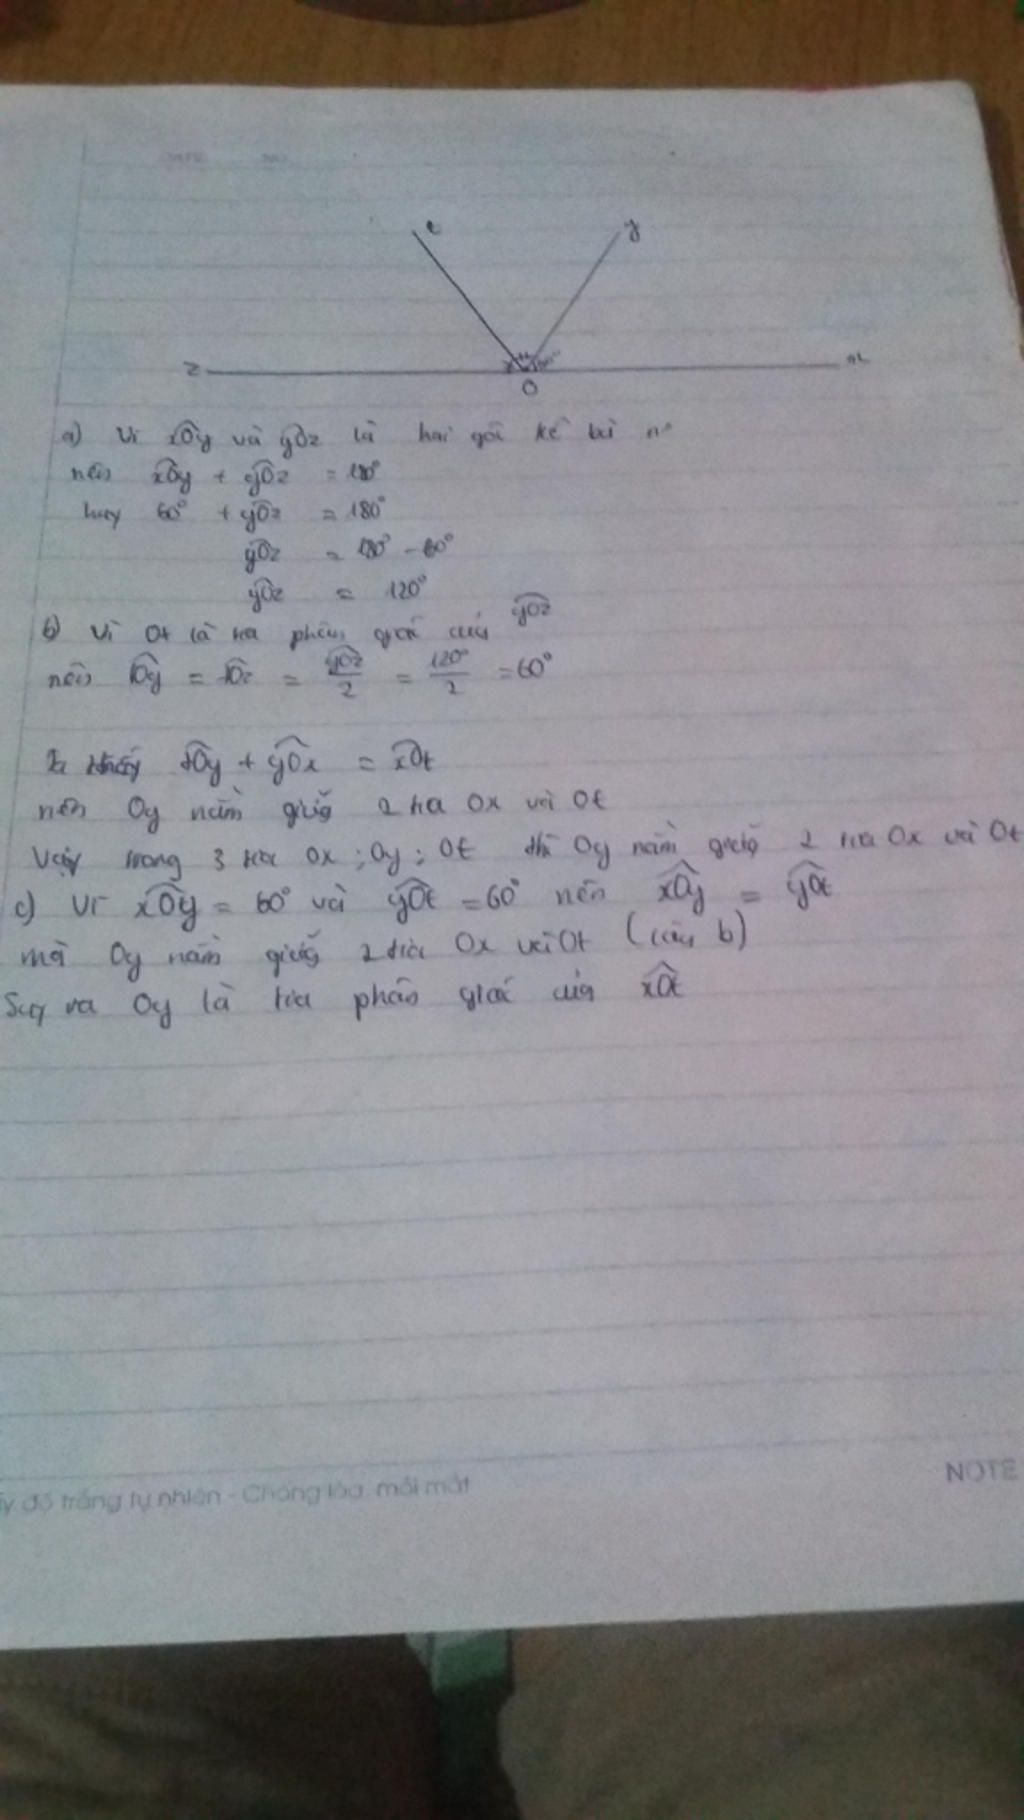 t y
z x
O
a) Vì xÔy và yÔz là hai góc kề bù
nên xÔy + yÔz = 180°
hay 60° + yÔz = 180°
yÔz = 180° - 60°
yÔz = 120°
b) Vì Ot là tia phân giác của yÔz
nên tÔy = tÔz = yÔz/2 = 120°/2 = 60°
Ta thấy tÔy + yÔx = xÔt
nên Oy nằm giữa 2 tia Ox và Ot
Vậy trong 3 tia Ox ; Oy ; Ot thì Oy nằm giữa 2 tia Ox và Ot
c) Vì xÔy = 60° và yÔt = 60° nên xÔy = yÔt
mà Oy nằm giữa 2 tia Ox và Ot (câu b)
Suy ra Oy là tia phân giác của xÔt
độ trắng tự nhiên - Chống lóa, mỏi mắt
NOTE